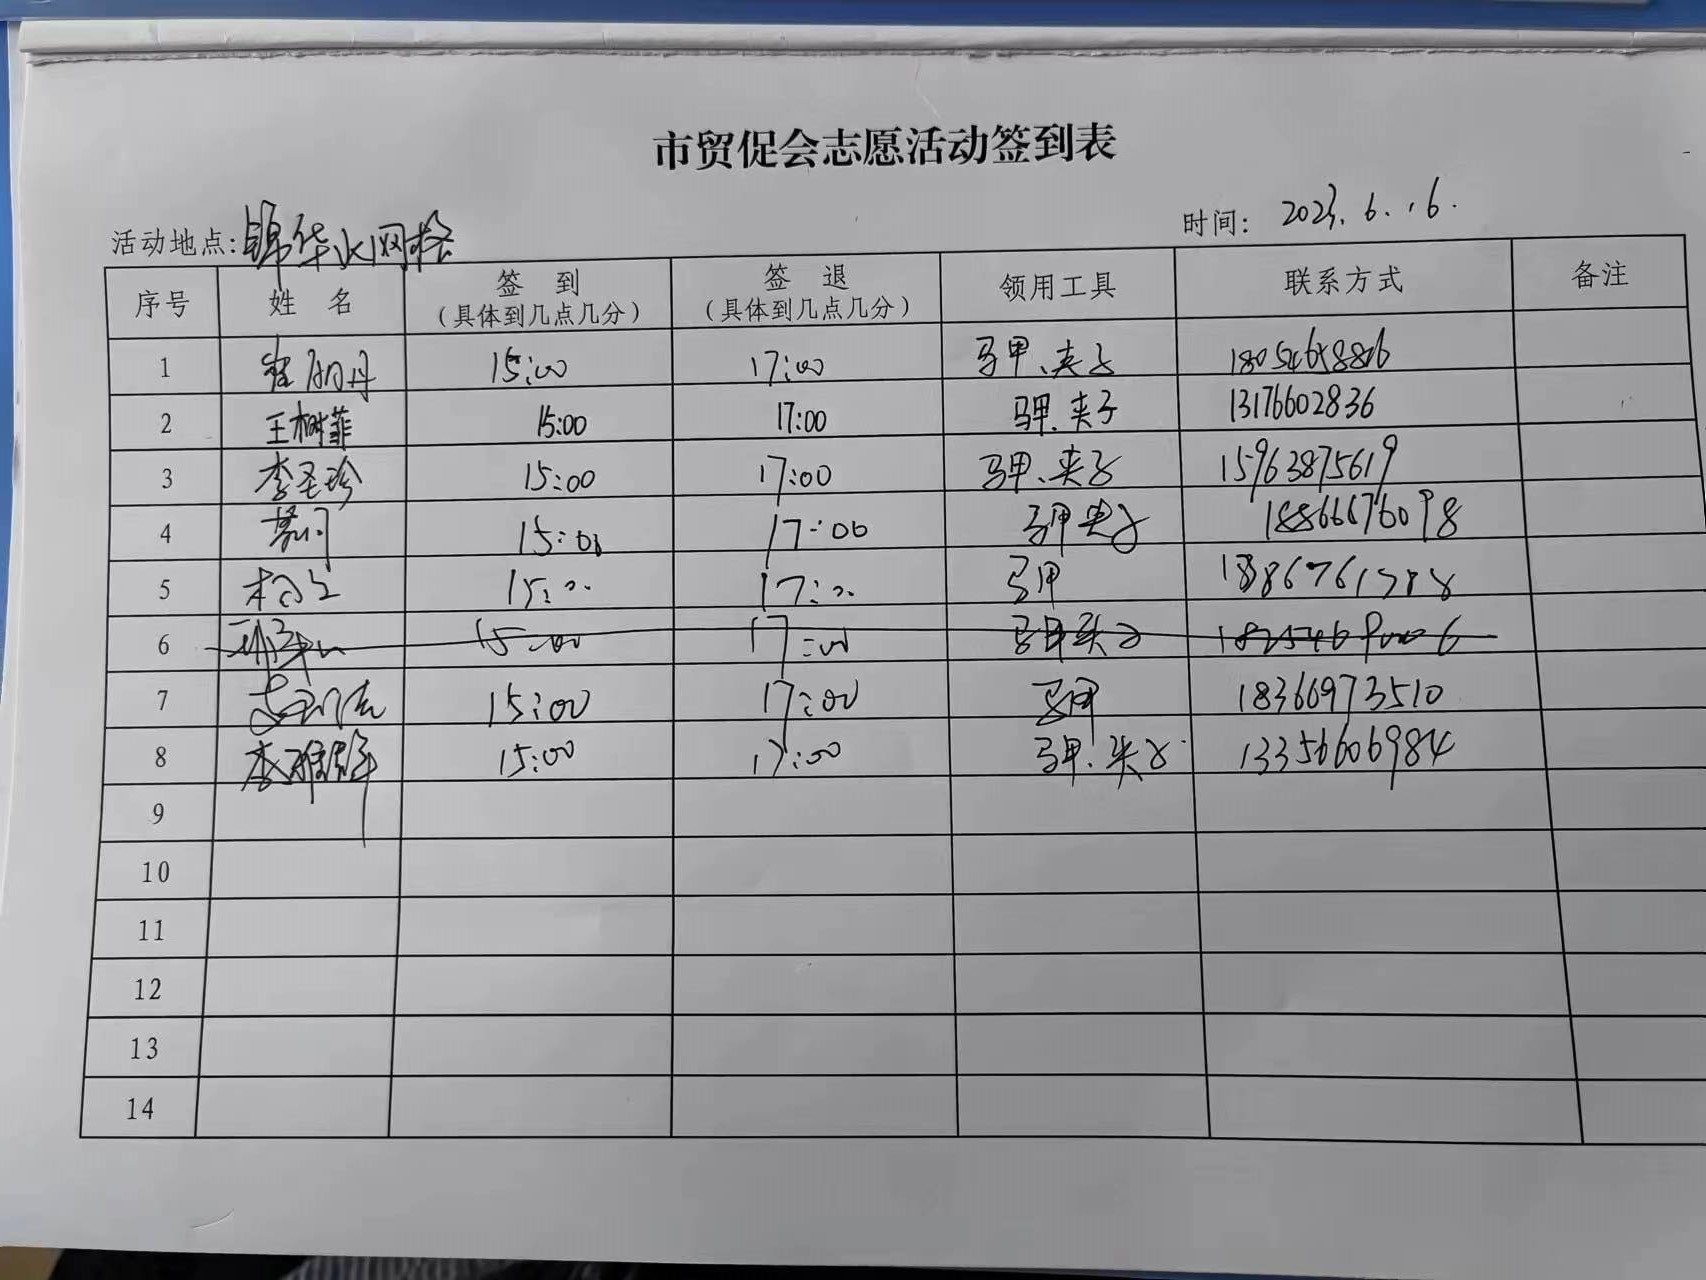 市贸促会志愿活动签到表
活动地点: 锦华 网格 时间: 2023. 6. 16.
序号 姓 名 签 到 (具体到几点几分) 签 退 (具体到几点几分) 领用工具 联系方式 备注
1 丹 15:00 17:00 马甲、夹子
2 王树菲 15:00 17:00 马甲、夹子 13176602836
3 李圣珍 15:00 17:00 马甲、夹子 15963875619
4 15:00 17:00 马甲 夹子 18866676098
5 15:00 17:00 马甲
6 15:00 17:00 马甲 夹子
7 15:00 17:00 马甲 18366973510
8 李雅 15:00 17:00 马甲、夹子 13356606984
9
10
11
12
13
14